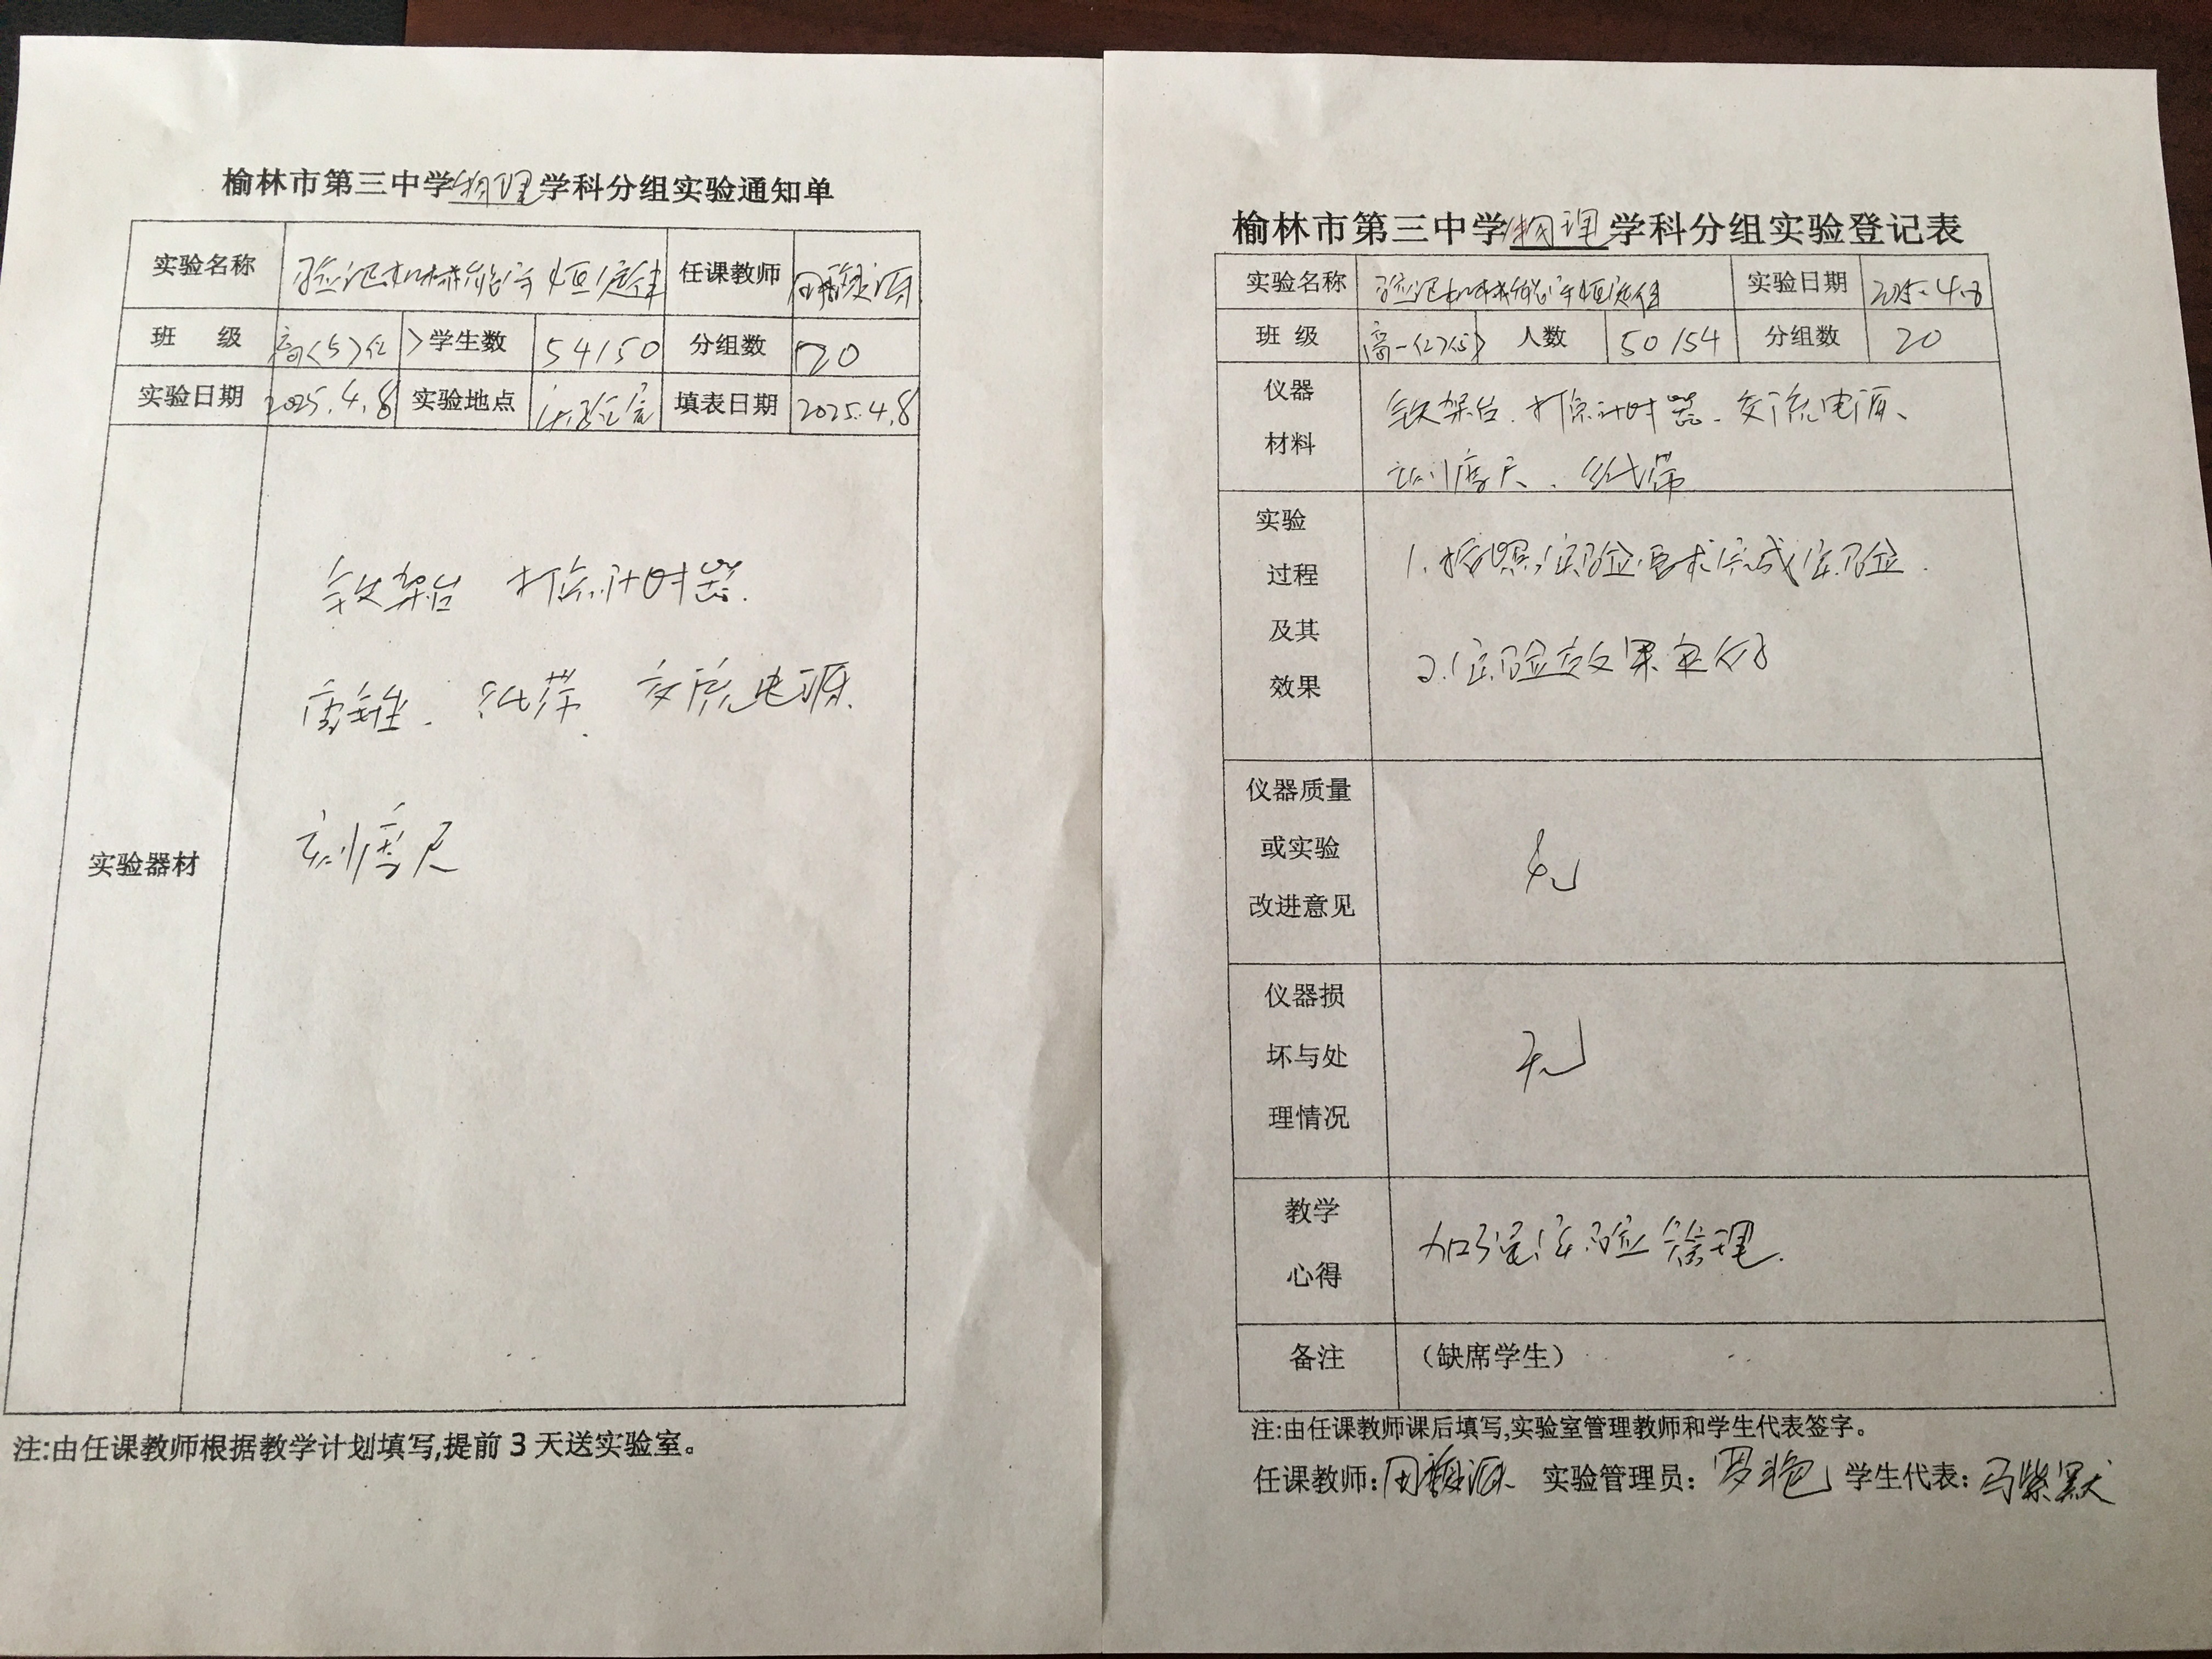 榆林市第三中学物理学科分组实验通知单
实验名称 验证机械能守恒定律 任课教师
班 级 学生数 54/50 分组数 20
实验日期 2025.4.8 实验地点 实验室 填表日期 2025.4.8
实验器材
铁架台 打点计时器.
重锤. 纸带. 交流电源.
刻度尺
注:由任课教师根据教学计划填写,提前3天送实验室。
榆林市第三中学物理学科分组实验登记表
实验名称 验证机械能守恒定律 实验日期 2025.4.8
班 级 人数 50/54 分组数 20
仪器
材料
铁架台、打点计时器、交流电源、
刻度尺、纸带
实验
过程
及其
效果
1.按照实验要求完成实验.
2.实验效果良好
仪器质量
或实验
改进意见
无
仪器损
坏与处
理情况
无
教学
心得
加强实验管理.
备注 (缺席学生)
注:由任课教师课后填写,实验室管理教师和学生代表签字。
任课教师: 实验管理员: 罗艳 学生代表: 马紫默